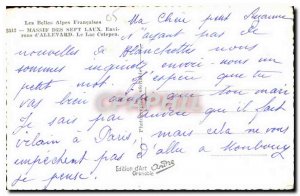 Les Belles Alpes Françaises
MASSIF DES SEPT LAUX. Envi-
rons d'ALLEVARD. Le Lac Cotepen.
Ma Chère petite Suzanne
n'ayant pas de
nouvelles de Blanchette nous
sommes inquiets envoi-nous un
petit mot. J'espère que tu
vas bien ainsi que ton mari
Je sais par qu'il fait
vilain à Paris, mais cela ne vous
empêchent pas d'aller à
je pense.
Edition d'Art
Grenoble
André